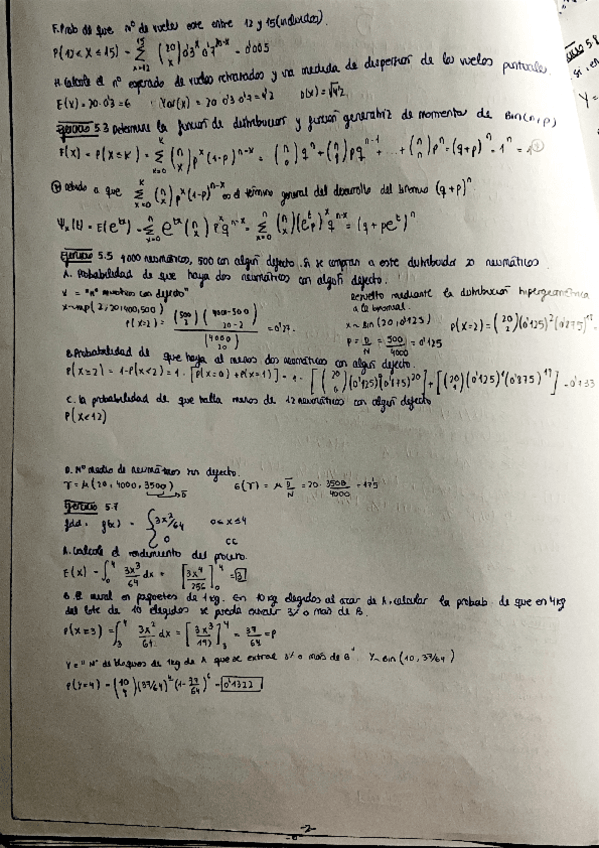 F. Prob de que nº de vuelos este entre 12 y 15 (incluidos).
P(12 ≤ X ≤ 15) = Σ (20 x) 0'3^x 0'7^20-x = 0'005
H. Calcule el nº esperado de vuelos retrasados y una medida de dispersion de los vuelos puntuales.
E(x) = 20·0'3 = 6 Var(x) = 20·0'3·0'7 = 4'2 D(x) = √4'2
Ejercicio 5.3 Determine la funcion de distribucion y funcion generatriz de momentos de Bin(n,p)
F(x) = P(X ≤ K) = Σ (n x) p^x (1-p)^n-x = (n 0) q^n + (n 1) p q^n-1 + ... + (n n) p^n = (q+p)^n = 1^n = 1
Debido a que Σ (n x) p^x (1-p)^n-x es el termino general del desarrollo del binomio (q+p)^n
Ψx(t) = E(e^tx) = Σ e^tx (n x) p^x q^n-x = Σ (n x) (e^t p)^x q^n-x = (q + pe^t)^n
Ejercicio 5.5 4000 neumáticos, 500 con algún defecto. Si se compran a este distribuidor 20 neumáticos.
A. Probabilidad de que haya dos neumáticos con algún defecto.
X = "nº neumaticos con defecto"
P(X=2) = (500 2)(4000-500 20-2) / (4000 20) = 0'27.
Resuelto mediante la distribución hipergeométrica
a la binomial.
X ~ Bin (20, 0'125) P(X=2) = (20 2)(0'125)^2 (0'875)
P = D/N = 500/4000 = 0'125
B. Probabilidad de que haya al menos dos neumáticos con algún defecto.
P(X ≥ 2) = 1-P(X<2) = 1-[P(X=0)+P(X=1)] = 1-[(20 0)(0'125)^0(0'875)^20] + [(20 1)(0'125)^1(0'875)^19]
C. la probabilidad de que halla menos de 12 neumáticos con algún defecto
P(X<12)
D. Nº medio de neumáticos sin defecto.
(20, 4000, 3500) 20 · 3500/4000 = 17'5
Ejercicio 5.7
f(x) = { 3x²/64 0≤x≤4
0 CC
A. Calcule el rendimiento del proceso.
E(X) = ∫ 3x³/64 dx = [3x⁴/256] = 3
en paquetes de 1kg. En 10 kg elegidos al azar de A, calcular la probab. de que en 4kg
del lote de 10 elegidos se pueda extraer 3% o más de B.
P(X≥3) = ∫ 3x²/64 dx = [3x³/192] = 37/64 = P
Y = "Nº de bloques de 1kg de A que se extrae 3% o más de B" Y ~ Bin (10, 37/64)
P(Y=4) = (10 4)(37/64)^4 (1-37/64)^6 = 0'1322
-2-